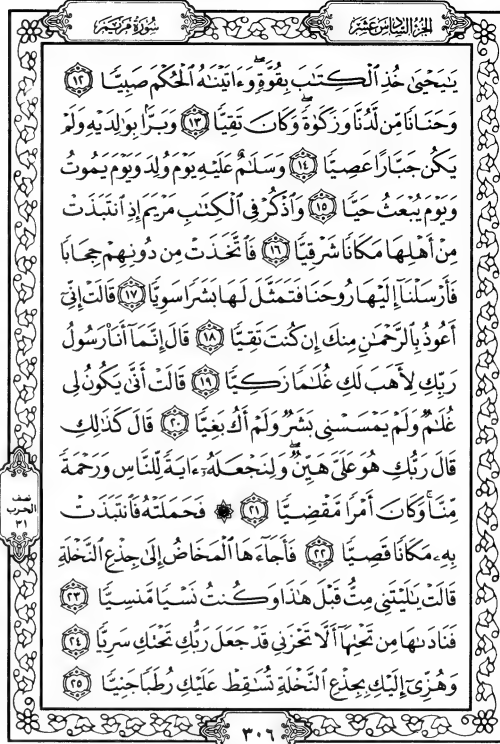 سُورَةُ مَرْيَمَ
الجزء السادس عشر
يَٰيَحْيَىٰ خُذِ ٱلْكِتَٰبَ بِقُوَّةٍۖ وَءَاتَيْنَٰهُ ٱلْحُكْمَ صَبِيًّا ١٢
وَحَنَانًا مِّن لَّدُنَّا وَزَكَوٰةًۖ وَكَانَ تَقِيًّا ١٣ وَبَرًّۢا بِوَٰلِدَيْهِ وَلَمْ
يَكُن جَبَّارًا عَصِيًّا ١٤ وَسَلَٰمٌ عَلَيْهِ يَوْمَ وُلِدَ وَيَوْمَ يَمُوتُ
وَيَوْمَ يُبْعَثُ حَيًّا ١٥ وَٱذْكُرْ فِى ٱلْكِتَٰبِ مَرْيَمَ إِذِ ٱنتَبَذَتْ
مِنْ أَهْلِهَا مَكَانًا شَرْقِيًّا ١٦ فَٱتَّخَذَتْ مِن دُونِهِمْ حِجَابًا
فَأَرْسَلْنَآ إِلَيْهَا رُوحَنَا فَتَمَثَّلَ لَهَا بَشَرًا سَوِيًّا ١٧ قَالَتْ إِنِّىٓ
أَعُوذُ بِٱلرَّحْمَٰنِ مِنكَ إِن كُنتَ تَقِيًّا ١٨ قَالَ إِنَّمَآ أَنَا۠ رَسُولُ
رَبِّكِ لِأَهَبَ لَكِ غُلَٰمًا زَكِيًّا ١٩ قَالَتْ أَنَّىٰ يَكُونُ لِى
غُلَٰمٌ وَلَمْ يَمْسَسْنِى بَشَرٌ وَلَمْ أَكُ بَغِيًّا ٢٠ قَالَ كَذَٰلِكِ
قَالَ رَبُّكِ هُوَ عَلَىَّ هَيِّنٌۖ وَلِنَجْعَلَهُۥٓ ءَايَةً لِّلنَّاسِ وَرَحْمَةً
مِّنَّاۚ وَكَانَ أَمْرًا مَّقْضِيًّا ٢١ ۞ فَحَمَلَتْهُ فَٱنتَبَذَتْ
بِهِۦ مَكَانًا قَصِيًّا ٢٢ فَأَجَآءَهَا ٱلْمَخَاضُ إِلَىٰ جِذْعِ ٱلنَّخْلَةِ
قَالَتْ يَٰلَيْتَنِى مِتُّ قَبْلَ هَٰذَا وَكُنتُ نَسْيًا مَّنسِيًّا ٢٣
فَنَادَىٰهَا مِن تَحْتِهَآ أَلَّا تَحْزَنِى قَدْ جَعَلَ رَبُّكِ تَحْتَكِ سَرِيًّا ٢٤
وَهُزِّىٓ إِلَيْكِ بِجِذْعِ ٱلنَّخْلَةِ تُسَٰقِطْ عَلَيْكِ رُطَبًا جَنِيًّا ٢٥
نصف
الحزب
٣١
٣٠٦